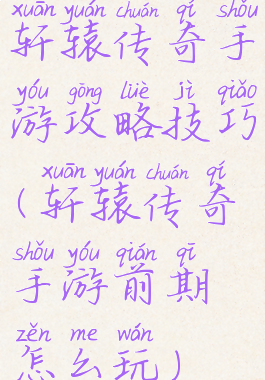 xuān yuán chuán qí shǒu
轩辕传奇手
yóu gōng lüè jì qiǎo
游攻略技巧
xuān yuán chuán qí
(轩辕传奇
shǒu yóu qián qī
手游前期
zěn me wán
怎么玩)